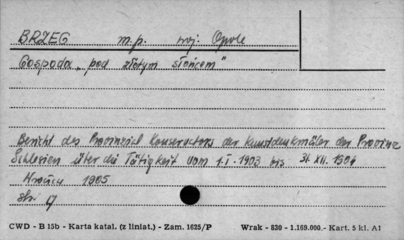 BRZEG m.p. woj. Opole
Gospoda „pod złotym słońcem"
Bericht des Provinzial Konservators der Kunstdenkmäler der Provinz
Schlesien über die Tätigkeit vom 1.I.1903 bis 31.XII.1904
1905
str. 9
CWD - B 15b - Karta katal. (z liniat.) - Zam. 1625/P Wrak - 830 - 1.169.000 - Kart. 5 kl. A1